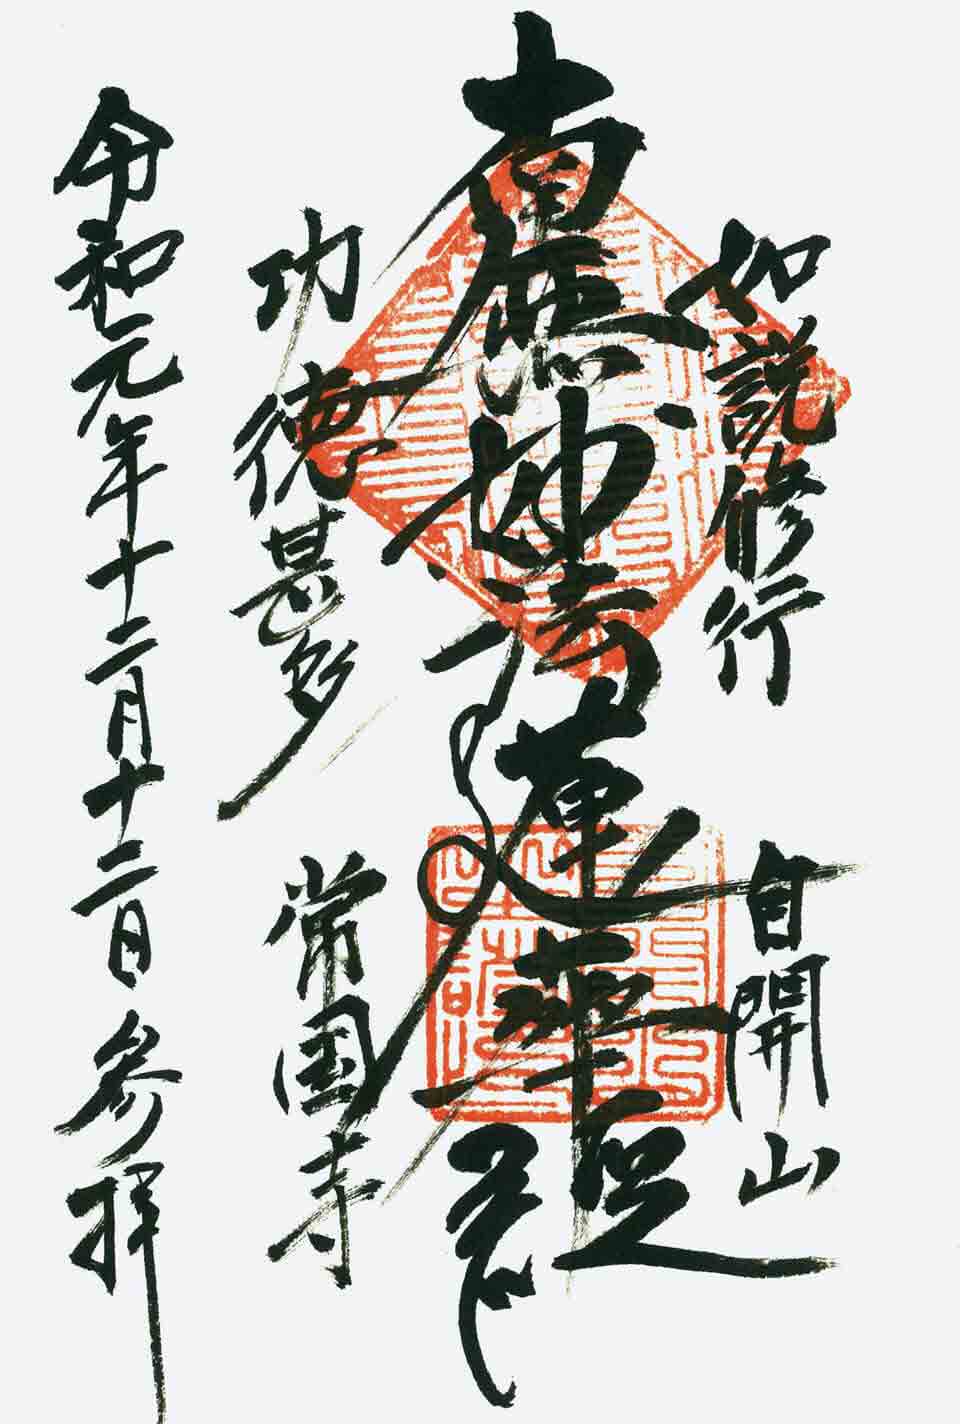 如説修行
自開山
南無妙法蓮華経
功徳甚多
常国寺
令和元年十二月十二日 参拝